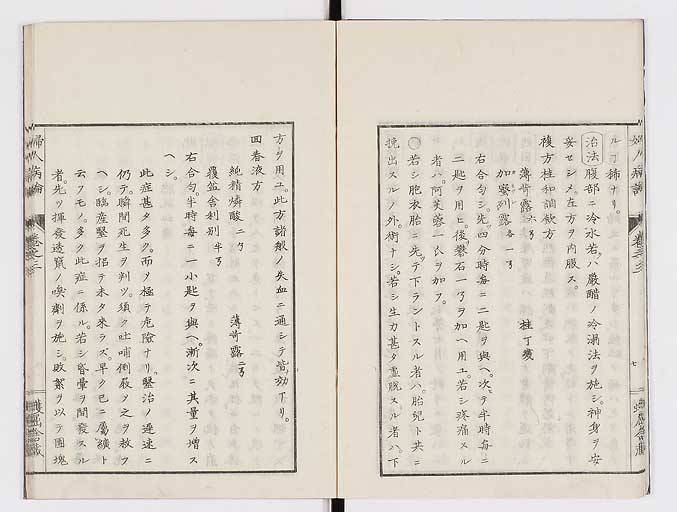 ルヿ稀ナリ。
治法 腹部ニ冷水若クハ厳醋ノ冷溻法ヲ施シ。神身ヲ安
妥セシメ左方ヲ内服ス。
複方桂和調飲方
薄荷露 六 桂丁幾
加 列露 各一
右合匀シ。先四分時毎ニ二匙ヲ與ヘ。次テ半時毎ニ
二匙ヲ用ヒ。後礬石一 ヲ加ヘ用ユ。若シ疼痛スル
者ハ。阿芙蓉一 ヲ加フ。
若シ胞衣胎ニ先テ下ラントスル者ハ。胎兒ト共ニ
挽出スルノ外。術ナシ。若シ生力甚タ虚脱スル者ハ。下
方ヲ用ユ。此方諸般ノ失血ニ通シテ皆効アリ。
回春液方
純精燐酸 二 薄荷露 二
覆盆舎利別 半
右合匀。半時毎ニ一小匙ヲ與ヘ。漸次ニ其量ヲ増ス
ヘシ。
此症甚タ多ク。而メ極テ危險ナリ。醫治ノ遲速ニ
仍テ。瞬間死生ヲ判ツ。須ク吐哺倒 之ヲ救フ
ヘシ。臨産醫ヲ招テ未タ來ラズ。早ク已ニ屬纊ト
云フモノ。多ク此症ニ係ル。若シ昏暈ヲ間發スル
者。先ツ揮發透竄ノ喚 ヲ施シ。敗絮ヲ以テ團塊
婦人病論
卷之三
七